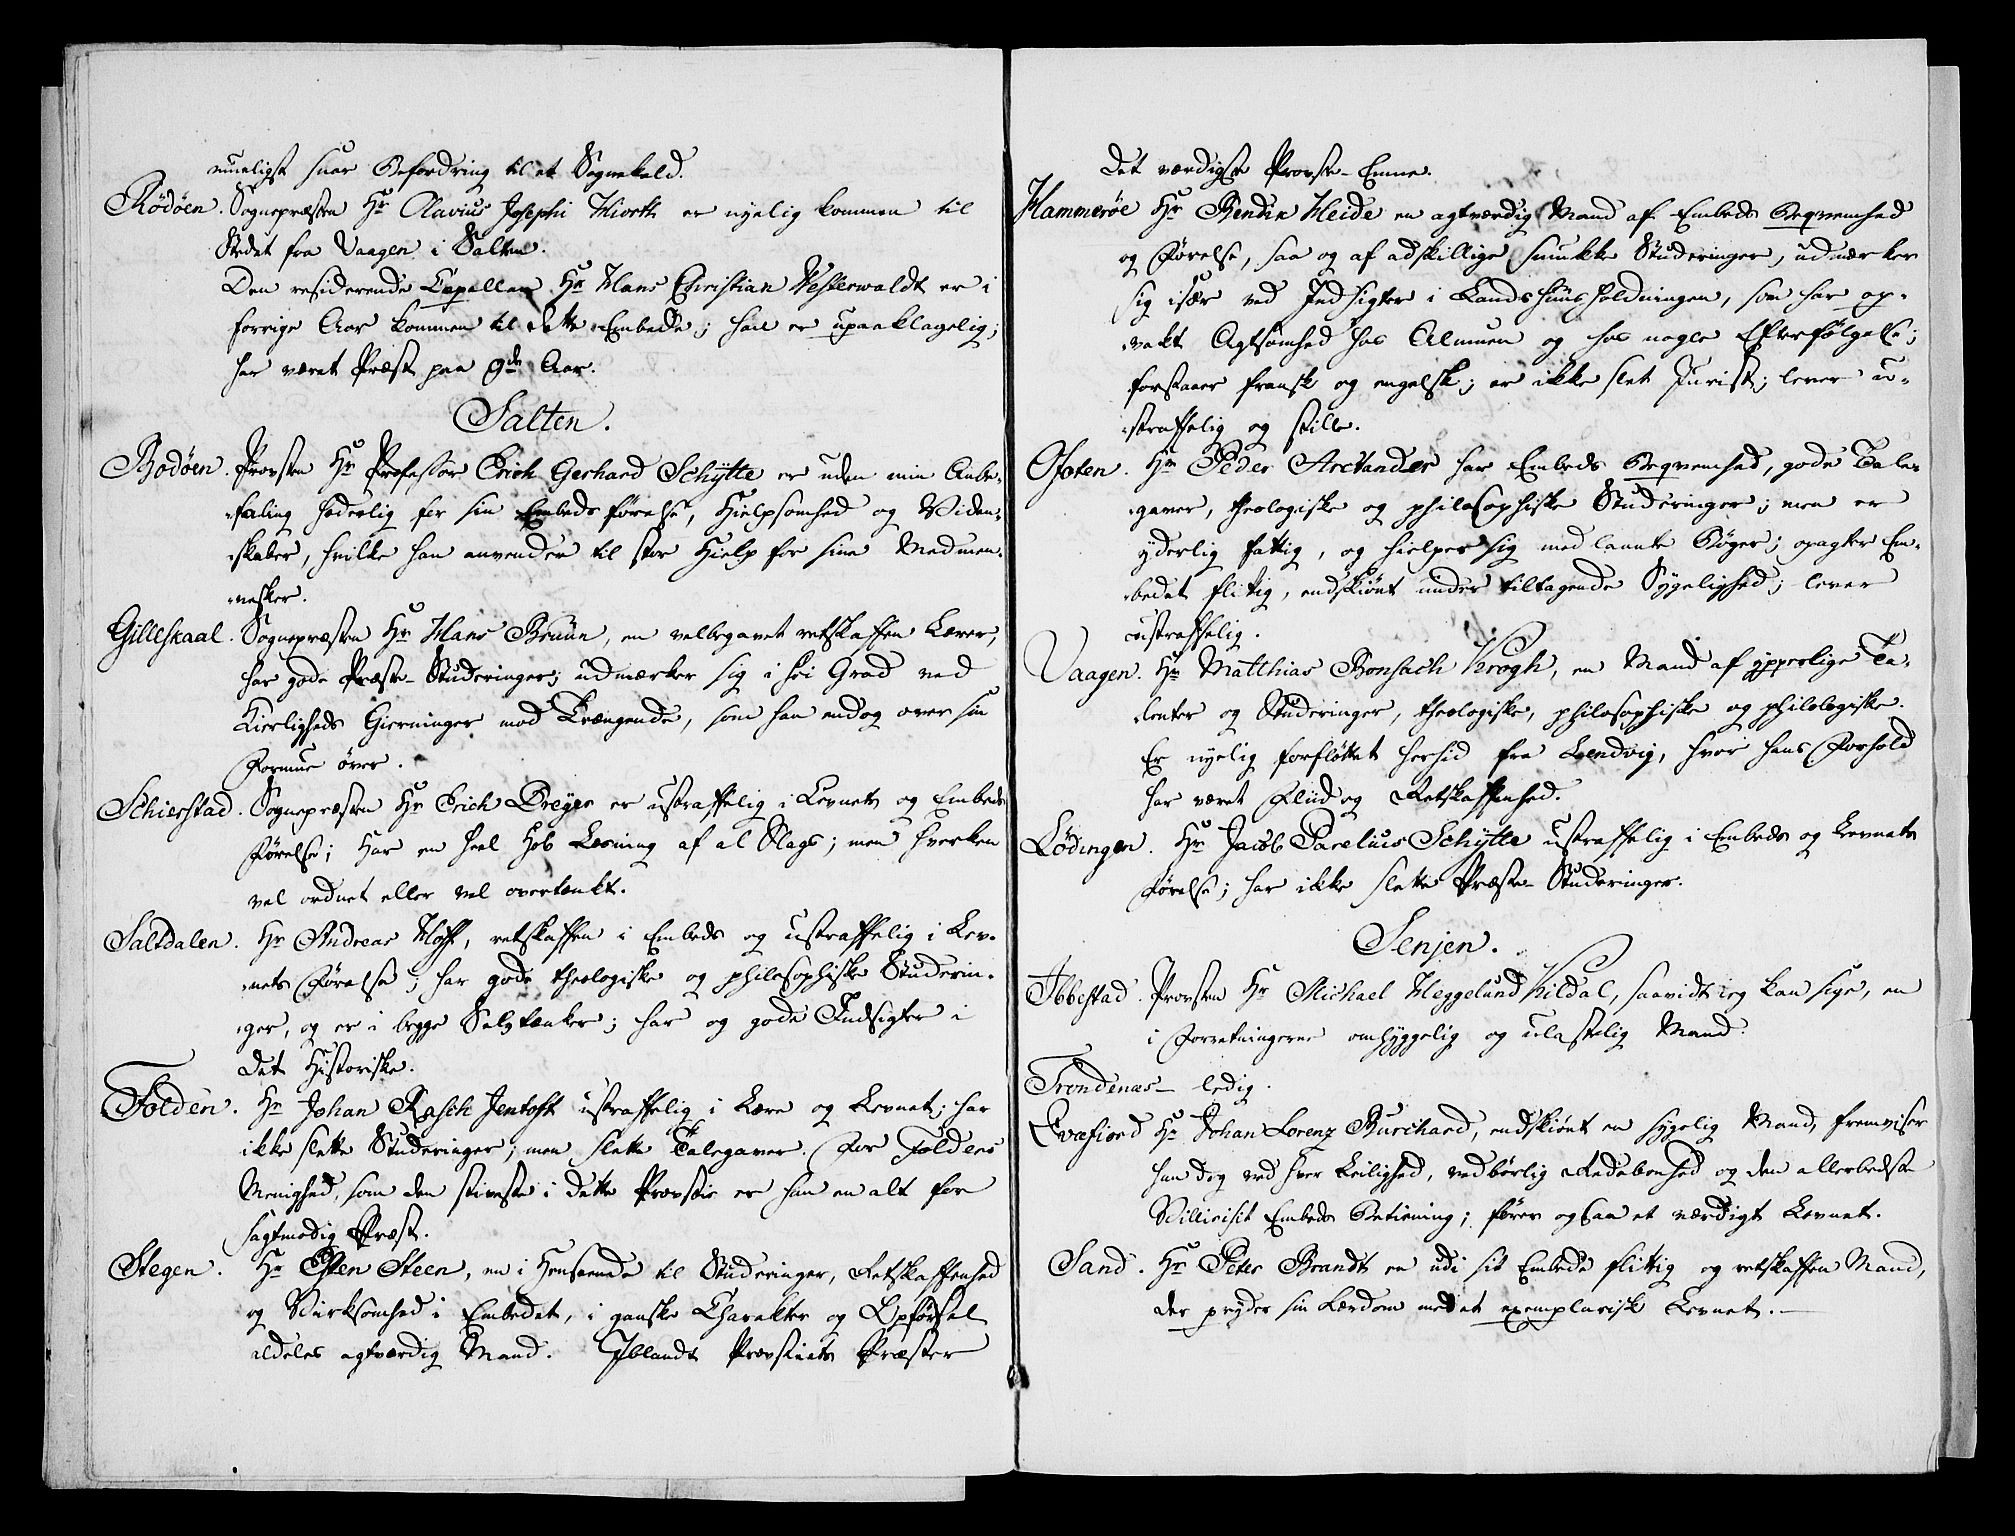 mueligst snar Befordring til et Sognekald.
Rödöen. Sognepræsten Hr Olavius Josephi Hiorth er nyelig kommen til
Stedet fra Vaagen i Salten.
Den residerende Capellan Hr Hans Christian Westerwaldt er i
forrige Aar kommen til dette Embede; han er upaaklagelig;
har været Præst paa 9de Aar.
Salten.
Bodöen. Provsten Hr Professor Erich Gerhard Schÿtte er uden min Anbe-
faling hæderlig for sin Embeds förelse, Hielpsomhed og Viden-
skaber, hvilke han anvender til stor Hielp for sine Medmen-
nesker.
Gilleskaal. Sognepræsten Hr Hans Bruun, en velbegavet retskaffen Lærer,
har gode Præste-Studeringer; udmærker sig i höi Grad ved
Kierligheds Gierninger mod Trængende, som han endog over sin
Formue över.
Schierstad. Sognepræsten Hr Erich Dreyer er ustraffelig i Levnets og Embeds
Förelse; Har en heel Hob Læsning af al Slags; men hverken
vel ordnet eller vel overtænkt.
Saltdalen. Hr Andreas Hoff, retskaffen i Embeds og ustraffelig i Lev-
nets Förelse; har gode theologiske og philosophiske Studerin-
ger, og er i begge Selvtænker; har og gode Indsigter i
det Historiske.
Folden. Hr Johan Rasch Jentoft ustraffelig i Lære og Levnet; har
ikke slette Studeringer; men slette Talegaver. For Foldens
Menighed, som den stiveste i dette Provstie er han en alt for
sagtmodig Præst.
Stegen. Hr Esten Steen, en i Henseende til Studeringer, Retskaffenhed
og Virksomhed i Embedet, i ganske Charakter og Opförsel
aldeles agtværdig Mand. Iblandt Provstiets Præster
det værdigste Provste-Emne.
Hammeröe Hr Bendix Heide en agtværdig Mand af Embeds Beqvemhed
og Förelse, saa og af adskillige smukke Studeringer, udmærker
sig især ved Indsigter i Landhuusholdningen, som har op-
vakt Agtsomhed hos Almuen og hos nogle Efterfölgelse;
forstaaer fransk og engelsk; er ikke slet Jurist; lever u-
straffelig og stille.
Ofoten. Hr Peder Arctander har Embeds Beqvemhed, gode Tale-
gaver, theologiske og philosophiske Studeringer; men er
yderlig fattig, og hielper sig med laante Böger; opagter Em-
bedet flitig, endskiönt under tiltagende Sygelighed; lever
ustraffelig.
Vaagen. Hr Matthias Bonsach Krogh, en Mand af ypperlige Ta-
lenter og Studeringer, theologiske, philosophiske og philologiske.
Er nyelig forflöttet herhid fra Lendvig, hvor hans Forhold
har været Fliid og Retskaffenhed.
Lödingen. Hr Jacob Parelius Schÿtte ustraffelig i Embeds og Levnets
förelse; har ikke slette Præste-Studeringer.
Senjen.
Ibbestad. Provsten Hr Michael Heggelund Kildal, saavidt ieg kan sige, en
i Forretningerne omhyggelig og ulastelig Mand.
Trondenæs- ledig.
Qvæfiord Hr Johan Lorenz Burchard, endskiönt en sygelig Mand, fremviser
han dog ved hver Leilighed, ved börlig Redebonhed og den allerbedste
Villie sit Embeds Betiening; förer ogsaa et værdigt Levnet.
Sand. Hr Peter Brandt en udi sit Embede flittig og retskaffen Mand,
der pryder sin Lærdom med et exemplarisk Levnet.-